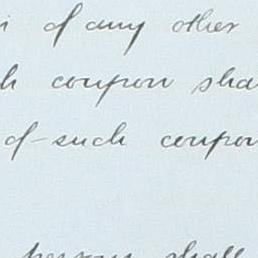 of any other
coupon sha
of such coupon
person shall